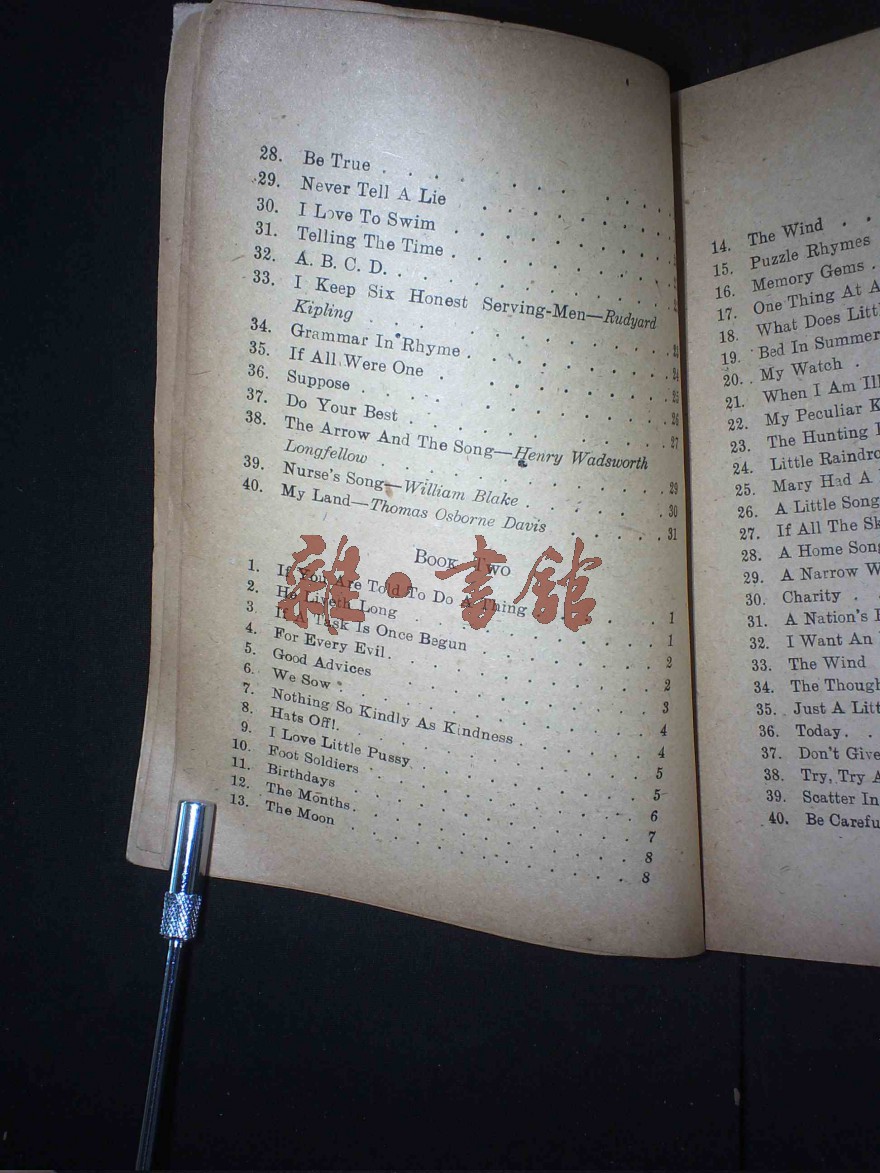 28. Be True . . . . . . . . . .
29. Never Tell A Lie . . . . . . . .
30. I Love To Swim . . . . . . . .
31. Telling The Time . . . . . . . .
32. A. B. C. D. . . . . . . . . .
33. I Keep Six Honest Serving-Men—Rudyard
Kipling . . . . . . . . . 23
34. Grammar In Rhyme . . . . . . . . 24
35. If All Were One . . . . . . . . 25
36. Suppose . . . . . . . . . 26
37. Do Your Best . . . . . . . . . 27
38. The Arrow And The Song—Henry Wadsworth
Longfellow . . . . . . . . . 29
39. Nurse's Song—William Blake . . . . . . 30
40. My Land—Thomas Osborne Davis . . . . . 31
Book Two
1. If You Are Told To Do A Thing . . . . . 1
2. He Liveth Long . . . . . . . . 1
3. If A Task Is Once Begun . . . . . . 2
4. For Every Evil . . . . . . . . . 2
5. Good Advices . . . . . . . . 3
6. We Sow . . . . . . . . . 4
7. Nothing So Kindly As Kindness . . . . . 4
8. Hats Off! . . . . . . . . . 5
9. I Love Little Pussy . . . . . . . 5
10. Foot Soldiers . . . . . . . . 6
11. Birthdays . . . . . . . . . 7
12. The Months . . . . . . . . . 8
13. The Moon . . . . . . . . . 8
雜·書館
14. The Wind . .
15. Puzzle Rhymes
16. Memory Gems .
17. One Thing At A
18. What Does
19. Bed In Summer
20. My Watch .
21. When I Am Ill
22. My Peculiar
23. The Hunting
24. Little
25. Mary Had A
26. A Little Song
27. If All The
28. A Home Song
29. A Narrow
30. Charity .
31. A Nation's
32. I Want An
33. The Wind
34. The
35. Just A
36. Today. .
37. Don't Give
38. Try, Try
39. Scatter In
40. Be